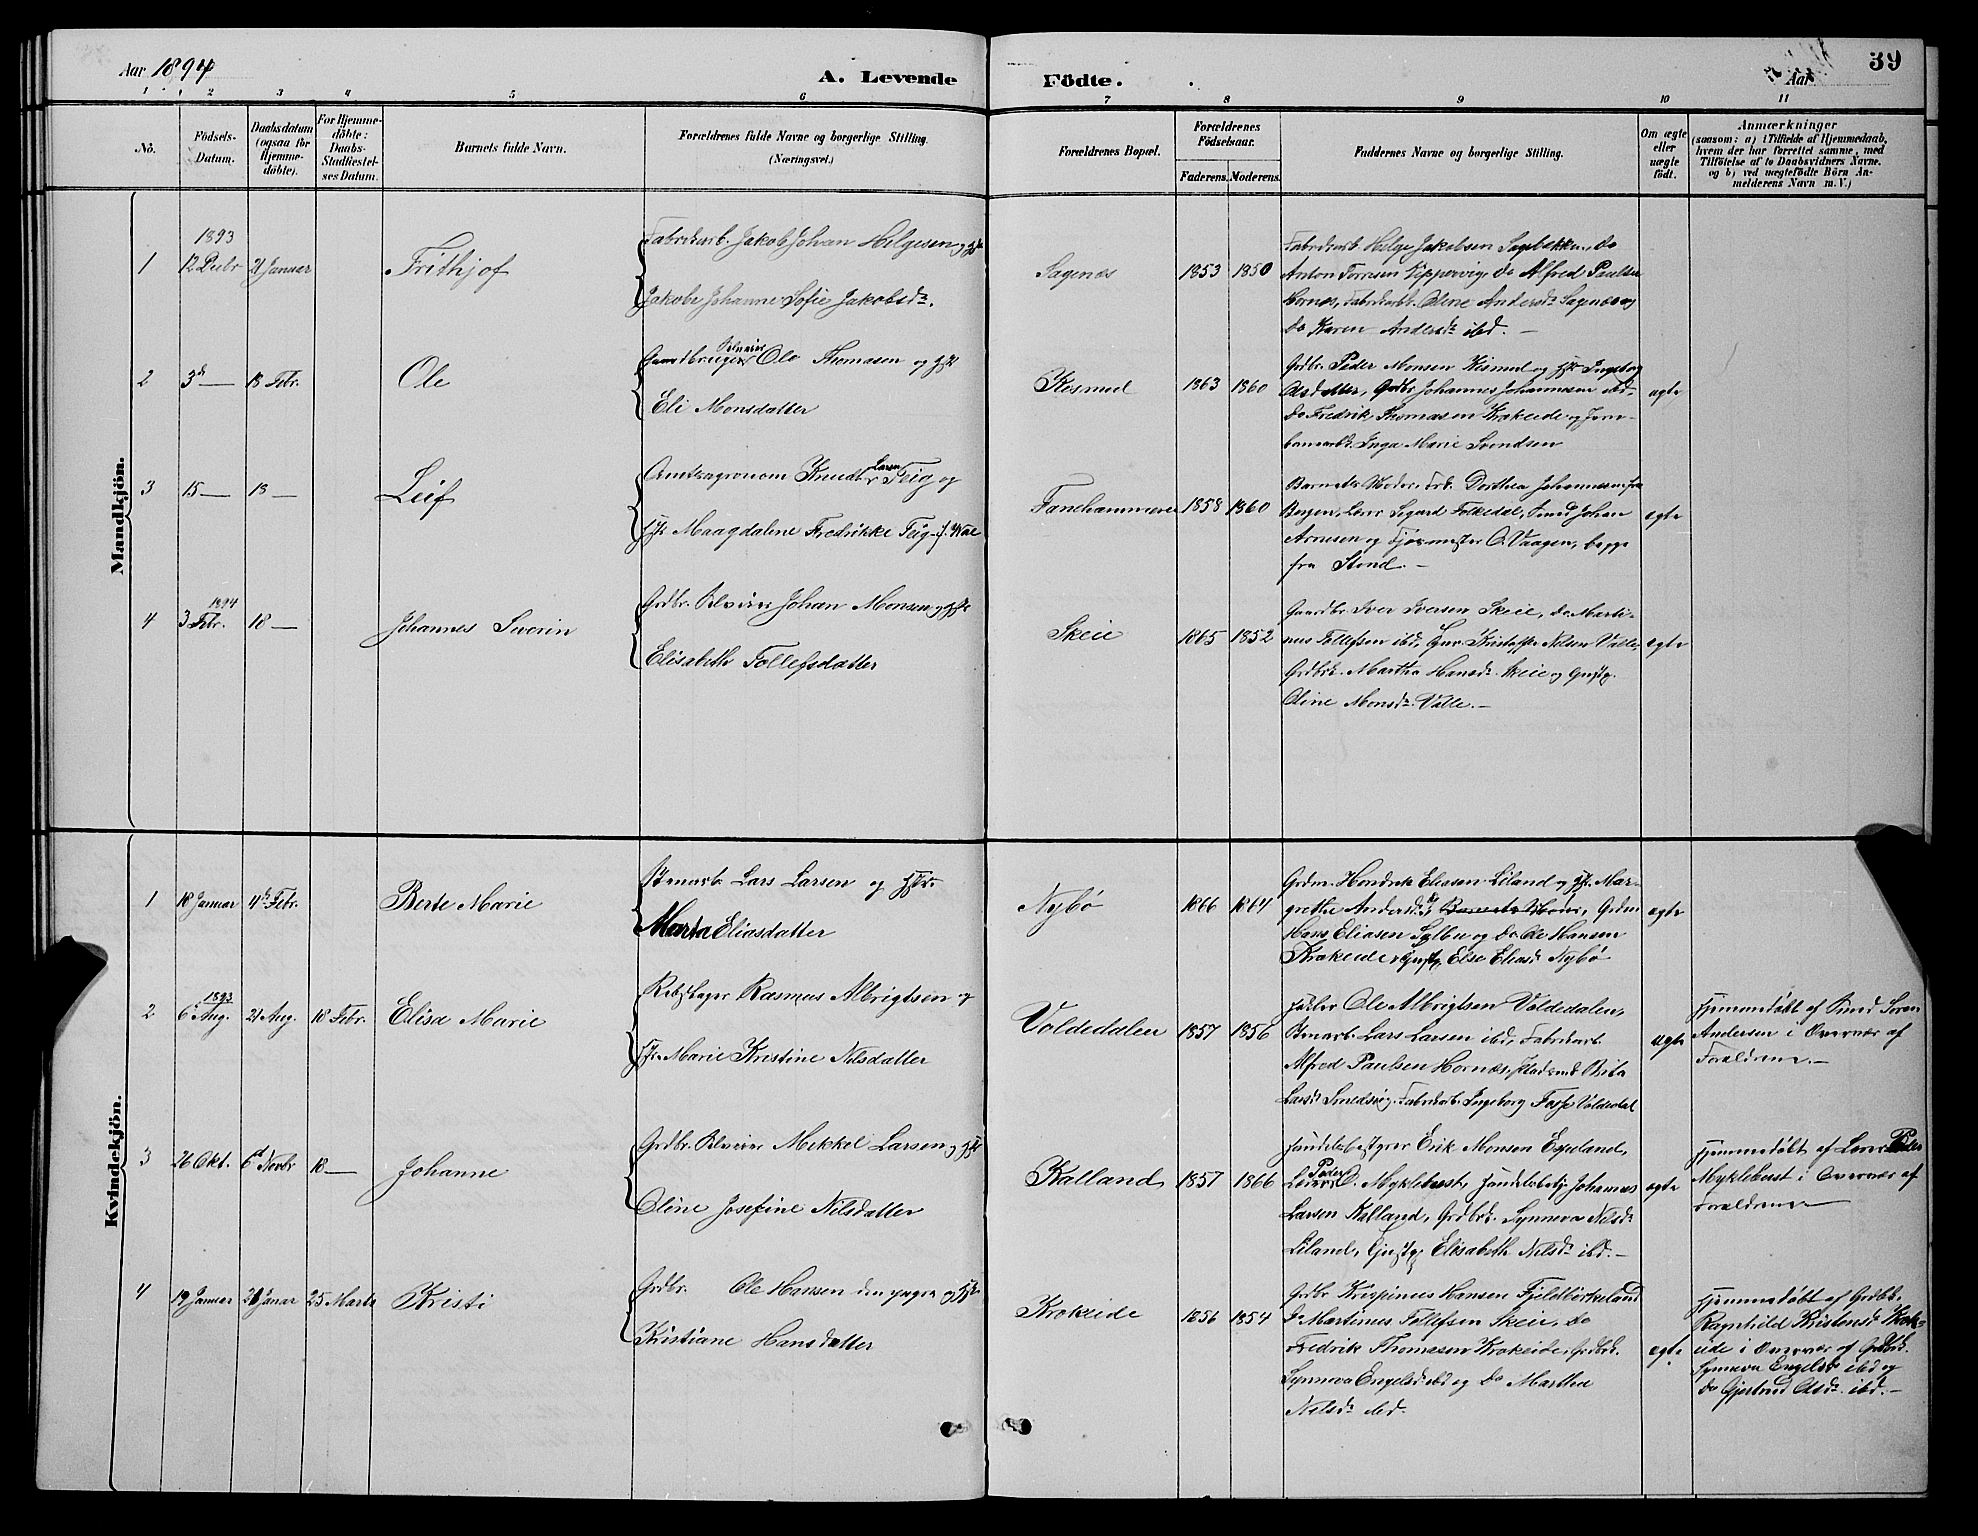 Aar 1894
A. Levende Födte.
Aar
39
1 2 3 4 5 6 7 8 9 10 11
No.
Födsels-
Datum.
Daabsdatum
(ogsaa for
Hjemme-
döbte).
For Hjemme-
döbte:
Daabs-
Stadfæstel-
ses Datum.
Barnets fulde Navn.
Forældrenes fulde Navne og borgerlige Stilling.
(Næringsvei.)
Forældrenes Bopæl.
Forældrenes
Födselsaar.
Faderens. Moderens.
Faddernes Navne og borgerlige Stilling.
Om ægte
eller
uægte
födt.
Anmærkninger
(saasom: a) i Tilfælde af Hjemmedaab,
hvem der har forrettet samme, med
Tilföielse af to Daabsvidners Navne.
og b) ved uægtefödte Börn An-
melderens Navn m. V.)
Mandkjön.
1
1893
12 Debr
21 Januar
Frithjof
Fabrikarb. Jakob Johan Helgesen og Hst
Jakobe Johanne Sofie Jakobsdr.
Sagenæs
1853 1850
Fabrikarb. Helge Jakobsen Sagebakken, do
Anton Torrisen Kippervig, do Alfred Paulsen
Hornæs, Fabrikarb. Oline Andersdr Sagenæs og
do Karen Andersdr ibd. —
2
3d —
18 Febr.
Ole
Gaardbruger Selveier Ole Thomasen og Hst
Eli Monsdatter
Kismul
1863 1860
Grdbr. Peder Monsen Kismul og Hst Ingeborg
Olsdatter, Grdbr. Johannes Johannesen ibd.,
do Fredrik Thomasen Krokeide og Jern-
banearb. Inga Marie Svendsen
ægte
3
15 —
18 —
Leif
Amtsagronom Knudt Larsen Teig og
Hst. Maagdalene Fredrikke Teig f. Wae
Fanehammeren
1858 1860
Barnets Moder, Frk. Dorthea Johannesen fra
Bergen, Lærer Sigurd Folkedal, Smed Johan
Arnesen og O. Vaagen, begge
fra Stend. —
ægte
4
1894
3 Febr.
18 —
Johannes Severin
Grdbr. Selveier Johan Monsen og Hst
Elisabeth Tollefsdatter
Skeie
1865 1852
Gaardbr. Iver Iversen Skeie, do Marti-
nus Tollefsen ibd, Kristoffer Nilsen Valle,
Grdbrk. Martha Hansdr. Skeie og
Oline Monsdr. Valle. —
ægte
Kvindekjön.
1
18 Januar
4de Febr.
Berte Marie
Stenarb. Lars Larsen og Hst.
Marta Eliasdatter
Nybø
1866 1864
Grdm. Hendrik Eliasen Liland og Hst. Mar-
grethe Andersdr. Barnets Moder, Grdm.
Hans Eliasen Sylbu og do Ole Hansen
Krokeide, Else Eliasdr Nybø
ægte
2
1893
6 Aug.
21 Aug.
18 Febr.
Elisa Marie
Rebslager Rasmus Albrigtsen og
Hst. Marie Kristine Nilsdatter
Voldedalen
1857 1856
Ole Albrigtsen Voldedalen,
Stenarb. Lars Larsen ibd, Fabrikarb.
Alfred Paulsen Hornæs, Brita
Larsdr Smedsvig, Fabrikarb. Ingeborg Fosse Voldedal
ægte
Hjemmedøbt af Smed Søren
Andersen i Overvær af
Forældrene. —
3
26 Okt.
6te Novbr
18 —
Johanne
Grdbr. Selveier Mikkel Larsen og Hst
Oline Josefine Nilsdatter
Kalland
1857 1866
Handelsbestyrer Erik Monsen Espeland,
Lærer Peder O. Myklebust, Handelsbetj. Johannes
Larsen Kalland, Grdbrk. Synneva Nilsdr
Liland, Elisabeth Nilsdr ibd. —
ægte
Hjemmedøbt af Lærer Peder
Myklebust i Overvær af
Forældrene —
4
19 Januar
21 Januar
25 Marts
Kristi
Grdbr. Ole Hansen den yngre og Hst
Kristiane Hansdatter
Krokeide
1856 1854
Grdbr Krispinus Hansen Fjeldbirkeland
do Martinus Tollefsen Skeie, do
Fredrik Thomasen Krokeide, Grdbrk.
Synneva Engelsdr ibd og do Martha
Nilsdr ibd.
ægte
Hjemmedøbt af Grdbk.
Ragnhild Kristensdr Krok-
eide i Overvær af Grdbrk.
Synneva Engelsdr ibd og
do Gjertrud Olsdr. ibd. —